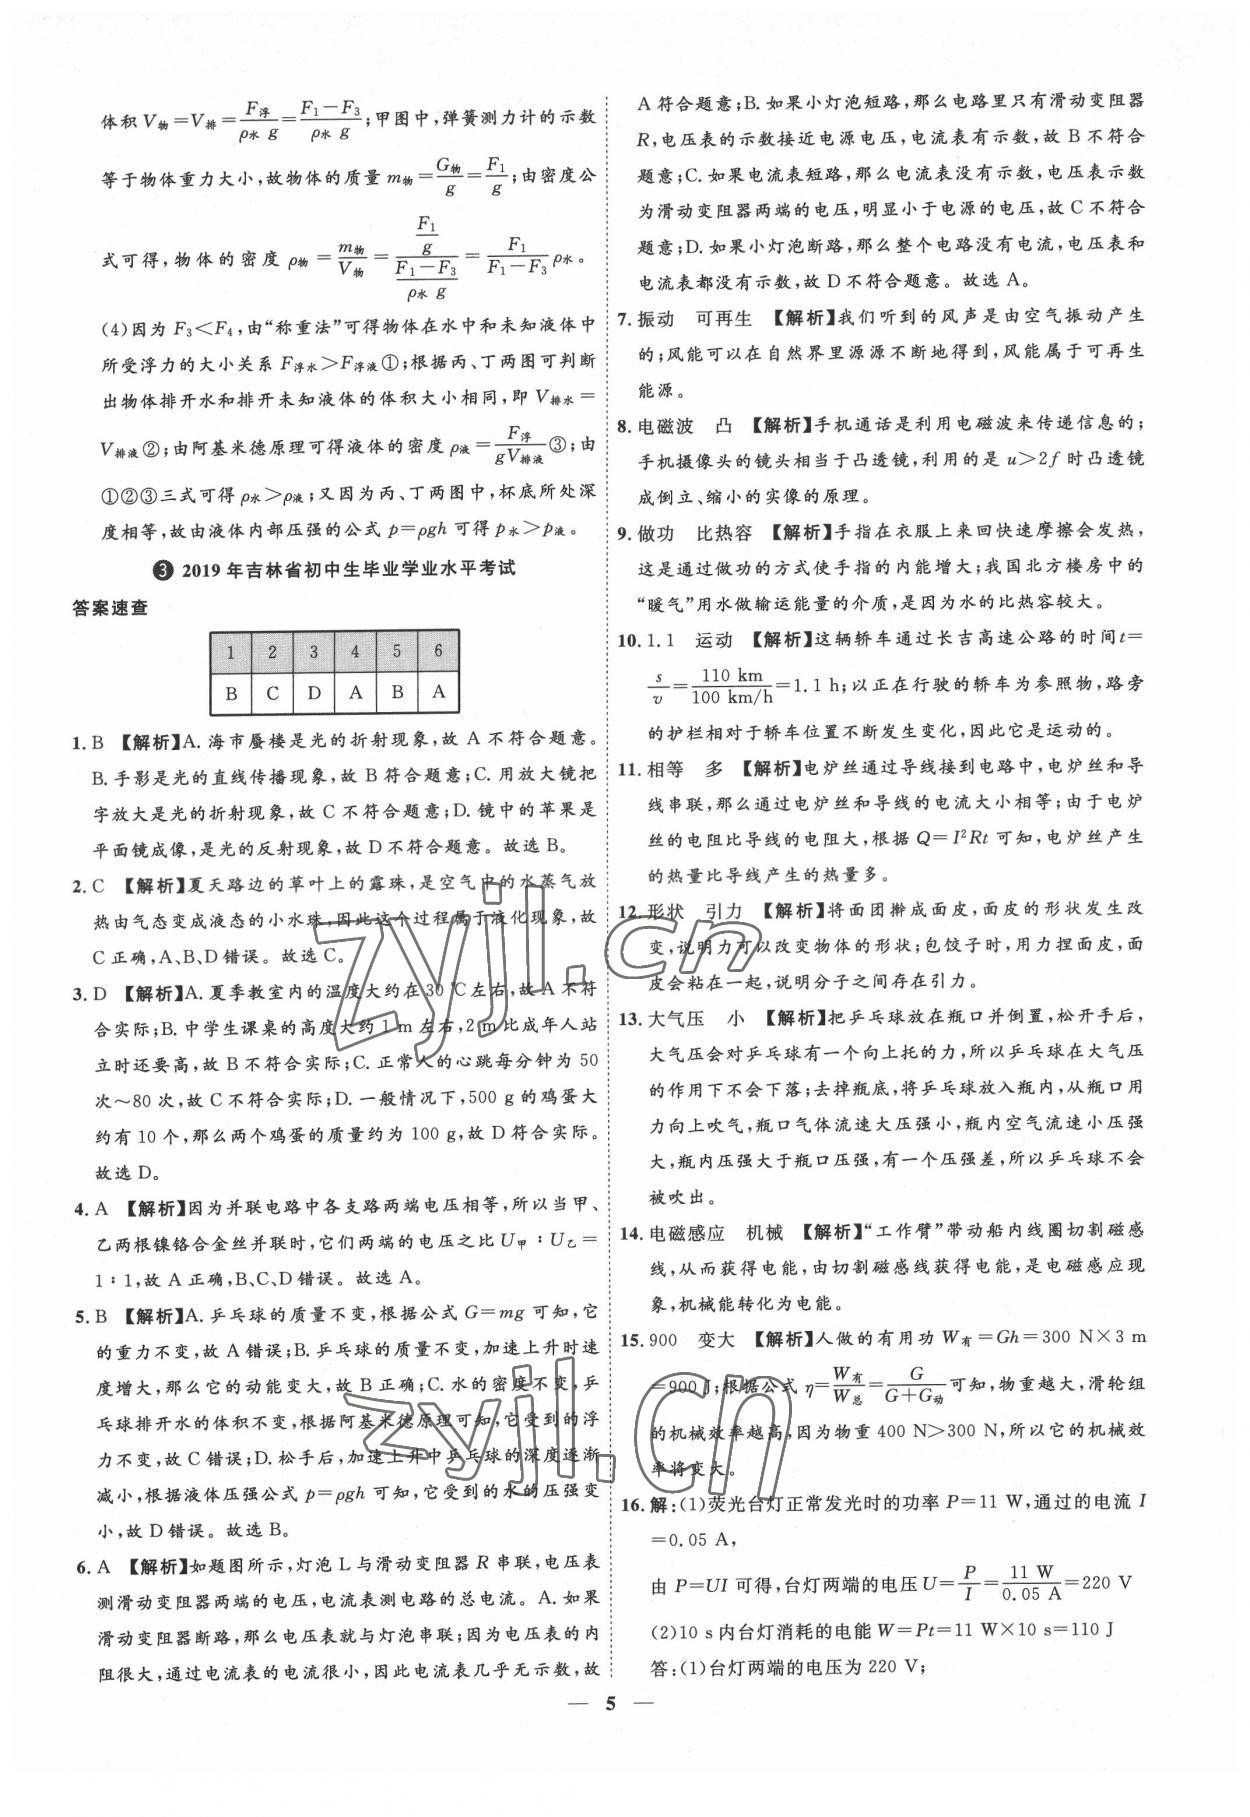 体积 V物=V排=F浮/(ρ水 g)=(F₁-F₃)/(ρ水 g);甲图中,弹簧测力计的示数
等于物体重力大小,故物体的质量 m物=G物/g=F₁/g;由密度公
式可得,物体的密度 ρ物=m物/V物=(F₁/g)/((F₁-F₃)/(ρ水 g))=F₁/(F₁-F₃)ρ水。
(4)因为 F₃<F₄,由“称重法”可得物体在水中和未知液体中
所受浮力的大小关系 F浮水>F浮液①;根据丙、丁两图可判断
出物体排开水和排开未知液体的体积大小相同,即 V排水=
V排液②;由阿基米德原理可得液体的密度 ρ液=F浮/(gV排液)③;由
①②③三式可得 ρ水>ρ液;又因为丙、丁两图中,杯底所处深
度相等,故由液体内部压强的公式 p=ρgh 可得 p水>p液。
3 2019 年吉林省初中生毕业学业水平考试
答案速查
1 2 3 4 5 6
B C D A B A
1. B 【解析】A. 海市蜃楼是光的折射现象,故 A 不符合题意。
B. 手影是光的直线传播现象,故 B 符合题意;C. 用放大镜把
字放大是光的折射现象,故 C 不符合题意;D. 镜中的苹果是
平面镜成像,是光的反射现象,故 D 不符合题意。故选 B。
2. C 【解析】夏天路边的草叶上的露珠,是空气中的水蒸气放
热由气态变成液态的小水珠,因此这个过程属于液化现象,故
C 正确,A、B、D 错误。故选 C。
3. D 【解析】A. 夏季教室内的温度大约在 30 ℃左右,故 A 不符
合实际;B. 中学生课桌的高度大约 1 m 左右,2 m 比成年人站
立时还要高,故 B 不符合实际;C. 正常人的心跳每分钟为 50
次~80 次,故 C 不符合实际;D. 一般情况下,500 g 的鸡蛋大
约有 10 个,那么两个鸡蛋的质量约为 100 g,故 D 符合实际。
故选 D。
4. A 【解析】因为并联电路中各支路两端电压相等,所以当甲、
乙两根镍铬合金丝并联时,它们两端的电压之比 U甲∶U乙=
1∶1,故 A 正确,B、C、D 错误。故选 A。
5. B 【解析】A. 乒乓球的质量不变,根据公式 G=mg 可知,它
的重力不变,故 A 错误;B. 乒乓球的质量不变,加速上升时速
度增大,那么它的动能变大,故 B 正确;C. 水的密度不变,乒
乓球排开水的体积不变,根据阿基米德原理可知,它受到的浮
力不变,故 C 错误;D. 松手后,加速上升中乒乓球的深度逐渐
减小,根据液体压强公式 p=ρgh 可知,它受到的水的压强变
小,故 D 错误。故选 B。
6. A 【解析】如题图所示,灯泡 L 与滑动变阻器 R 串联,电压表
测滑动变阻器两端的电压,电流表测电路的总电流。A. 如果
滑动变阻器断路,那么电压表就与灯泡串联;因为电压表的内
阻很大,通过电流表的电流很小,因此电流表几乎无示数,故
A 符合题意;B. 如果小灯泡短路,那么电路里只有滑动变阻器
R,电压表的示数接近电源电压,电流表有示数,故 B 不符合
题意;C. 如果电流表短路,那么电流表没有示数,电压表示数
为滑动变阻器两端的电压,明显小于电源的电压,故 C 不符合
题意;D. 如果小灯泡断路,那么整个电路没有电流,电压表和
电流表都没有示数,故 D 不符合题意。故选 A。
7. 振动 可再生 【解析】我们听到的风声是由空气振动产生
的;风能可以在自然界里源源不断地得到,风能属于可再生
能源。
8. 电磁波 凸 【解析】手机通话是利用电磁波来传递信息的;
手机摄像头的镜头相当于凸透镜,利用的是 u>2f 时凸透镜
成倒立、缩小的实像的原理。
9. 做功 比热容 【解析】手指在衣服上来回快速摩擦会发热,
这是通过做功的方式使手指的内能增大;我国北方楼房中的
“暖气”用水做输运能量的介质,是因为水的比热容较大。
10. 1.1 运动 【解析】这辆轿车通过长吉高速公路的时间 t=
s/v=110 km/(100 km/h)=1.1 h;以正在行驶的轿车为参照物,路旁
的护栏相对于轿车位置不断发生变化,因此它是运动的。
11. 相等 多 【解析】电炉丝通过导线接到电路中,电炉丝和导
线串联,那么通过电炉丝和导线的电流大小相等;由于电炉
丝的电阻比导线的电阻大,根据 Q=I²Rt 可知,电炉丝产生
的热量比导线产生的热量多。
12. 形状 引力 【解析】将面团擀成面皮,面皮的形状发生改
变,说明力可以改变物体的形状;包饺子时,用力捏面皮,面
皮会粘在一起,说明分子之间存在引力。
13. 大气压 小 【解析】把乒乓球放在瓶口并倒置,松开手后,
大气压会对乒乓球有一个向上托的力,所以乒乓球在大气压
的作用下不会下落;去掉瓶底,将乒乓球放入瓶内,从瓶口用
力向上吹气,瓶口气体流速大压强小,瓶内空气流速小压强
大,瓶内压强大于瓶口压强,有一个压强差,所以乒乓球不会
被吹出。
14. 电磁感应 机械 【解析】“工作臂”带动船内线圈切割磁感
线,从而获得电能,由切割磁感线获得电能,是电磁感应现
象,机械能转化为电能。
15. 900 变大 【解析】人做的有用功 W有=Gh=300 N×3 m
=900 J;根据公式 η=W有/W总=G/(G+G动)可知,物重越大,滑轮组
的机械效率越高,因为物重 400 N>300 N,所以它的机械效
率将变大。
16. 解:(1)荧光台灯正常发光时的功率 P=11 W,通过的电流 I
=0.05 A,
由 P=UI 可得,台灯两端的电压 U=P/I=11 W/0.05 A=220 V
(2)10 s 内台灯消耗的电能 W=Pt=11 W×10 s=110 J
答:(1)台灯两端的电压为 220 V;
— 5 —
zyjl.cn
zyjl.cn